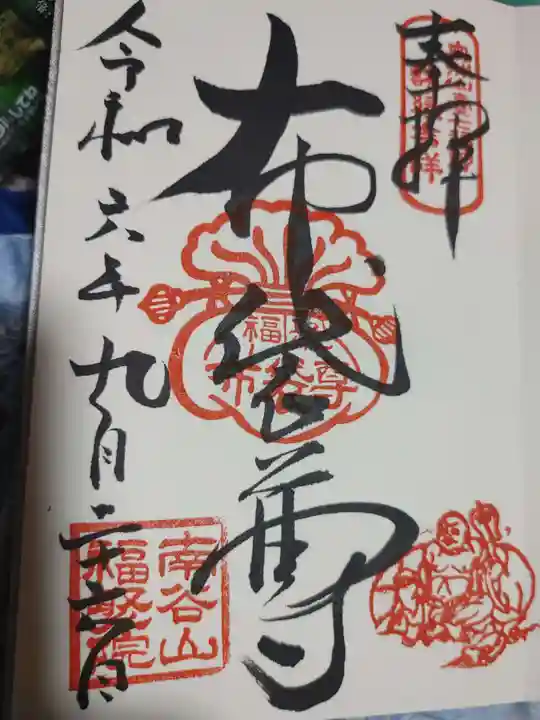 奉拝
布袋尊
令和六年九月二十六日
福
布袋尊
南谷山
福聚院